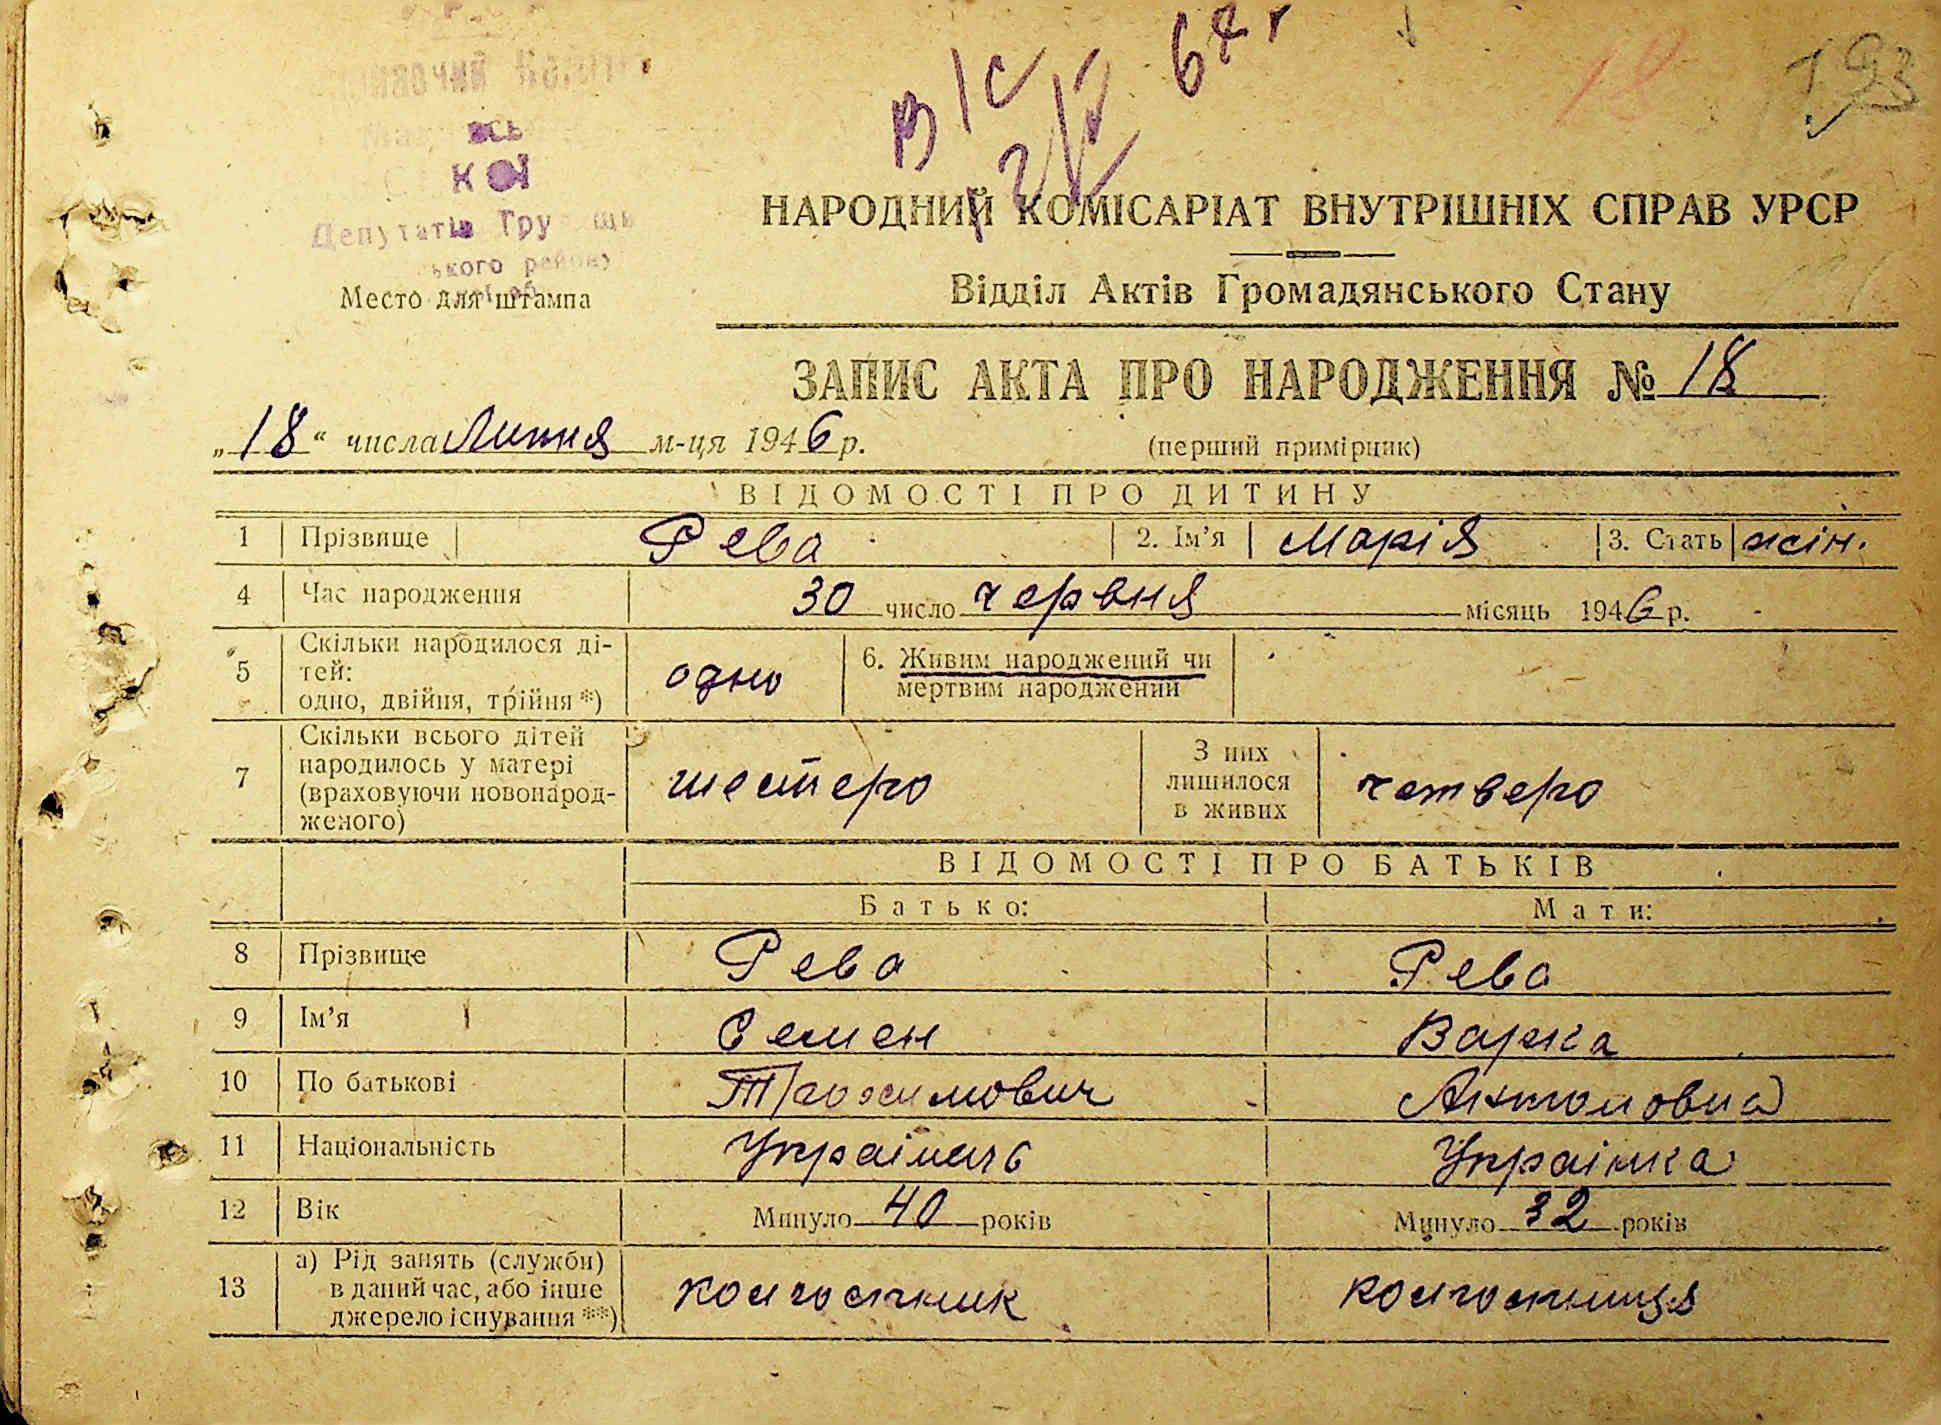 В/С
2/V 64 г
18
193
Депутатів Тру
ського району
Место для штампа
НАРОДНИЙ КОМІСАРІАТ ВНУТРІШНІХ СПРАВ УРСР
Відділ Актів Громадянського Стану
ЗАПИС АКТА ПРО НАРОДЖЕННЯ № 18
„18“ числа Липня м-ця 1946 р.
(перший примірник)
ВІДОМОСТІ ПРО ДИТИНУ
1 Прізвище Рева 2. Ім’я Марія 3. Стать жін.
4 Час народження 30 число червня місяць 1946 р.
5 Скільки народилося ді-
тей:
одно, двійня, трійня *) одно
6. Живим народжений чи
мертвим народжений
7 Скільки всього дітей
народилось у матері
(враховуючи новонарод-
женого) шестеро
З них
лишилося
в живих четверо
ВІДОМОСТІ ПРО БАТЬКІВ
Батько: Мати:
8 Прізвище Рева Рева
9 Ім’я Семен Варка
10 По батькові Антоновна
11 Національність Українець Українка
12 Вік Минуло 40 років Минуло 32 років
13 а) Рід занять (служби)
в даний час, або інше
джерело існування **) колгоспник колгоспниця